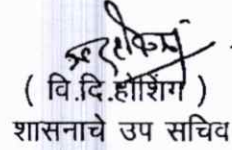 ( वि.दि.होशिंग )
शासनाचे उप सचिव